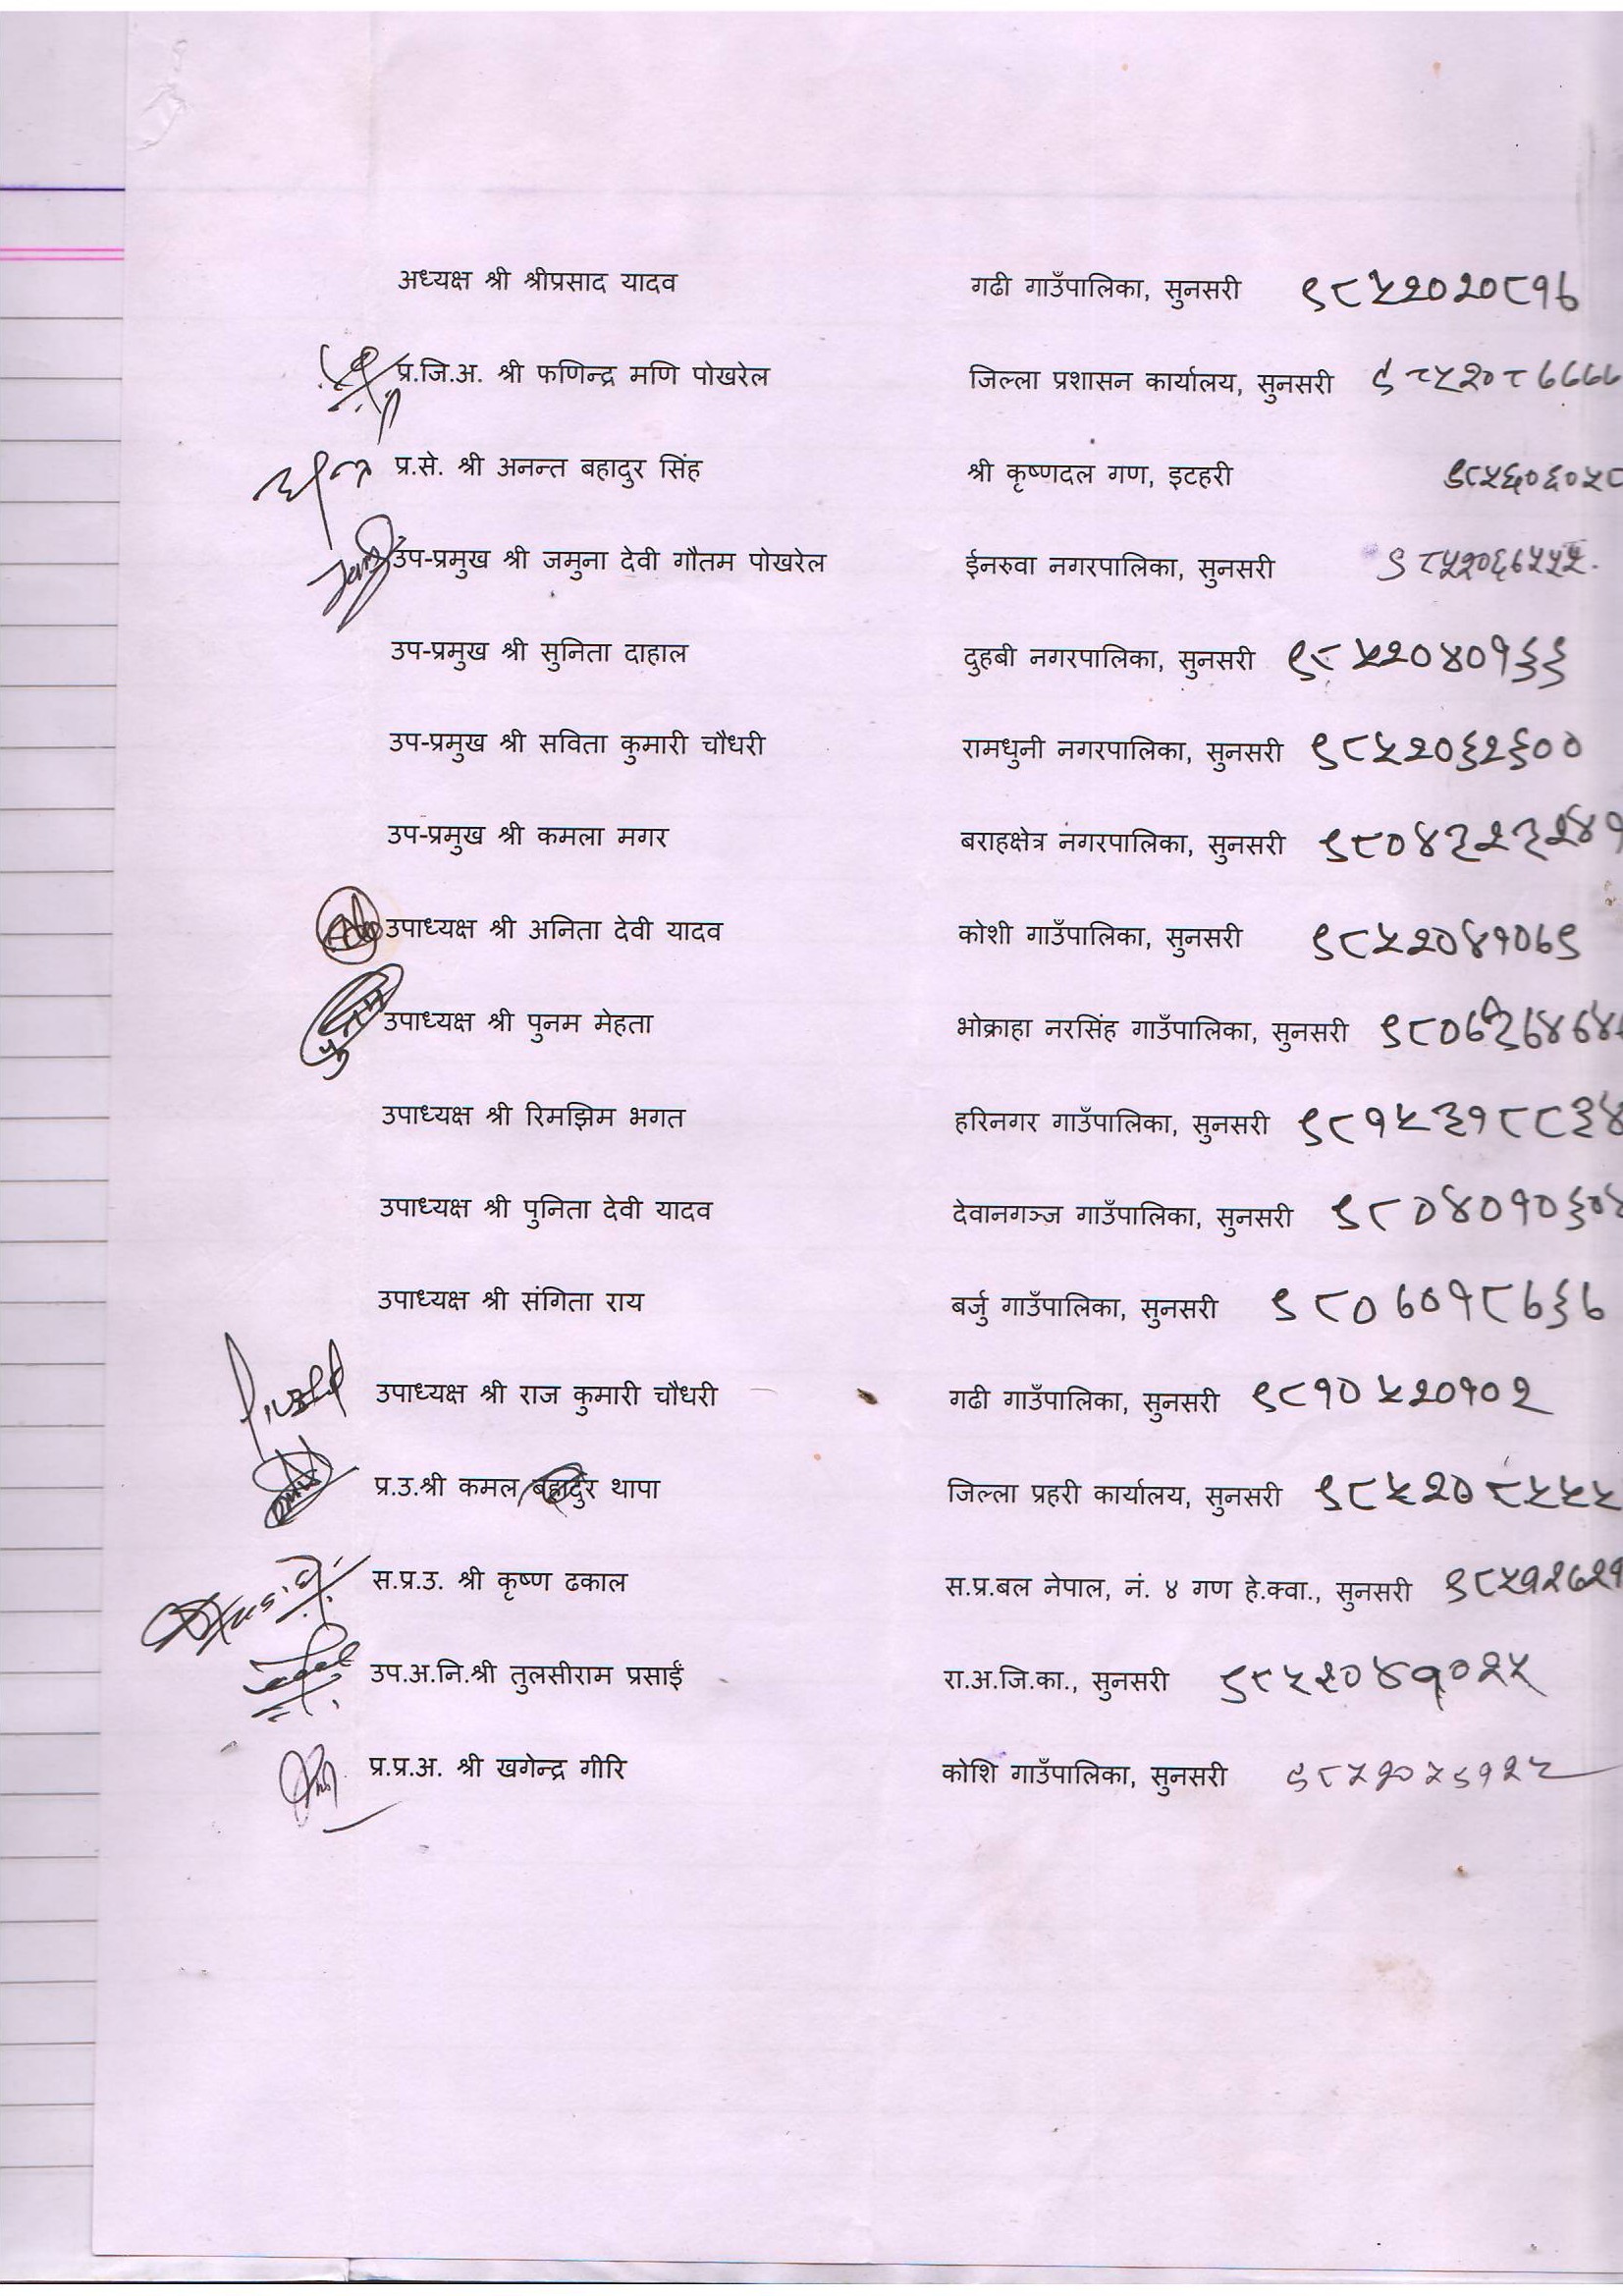 अध्यक्ष श्री श्रीप्रसाद यादव गढी गाउँपालिका, सुनसरी ९८५२०२०८१७
प्र.जि.अ. श्री फणिन्द्र मणि पोखरेल जिल्ला प्रशासन कार्यालय, सुनसरी ९८५२०८७७७७
प्र.से. श्री अनन्त बहादुर सिंह श्री कृष्णदल गण, इटहरी
उप-प्रमुख श्री जमुना देवी गौतम पोखरेल ईनरुवा नगरपालिका, सुनसरी ९८५२०६७५५५
उप-प्रमुख श्री सुनिता दाहाल दुहबी नगरपालिका, सुनसरी ९८५२०४०१६६
उप-प्रमुख श्री सविता कुमारी चौधरी रामधुनी नगरपालिका, सुनसरी ९८५२०६२६००
उप-प्रमुख श्री कमला मगर बराहक्षेत्र नगरपालिका, सुनसरी
उपाध्यक्ष श्री अनिता देवी यादव कोशी गाउँपालिका, सुनसरी ९८५२०४१०७९
उपाध्यक्ष श्री पुनम मेहता भोक्राहा नरसिंह गाउँपालिका, सुनसरी
उपाध्यक्ष श्री रिमझिम भगत हरिनगर गाउँपालिका, सुनसरी ९८१५३१८८३४
उपाध्यक्ष श्री पुनिता देवी यादव देवानगञ्ज गाउँपालिका, सुनसरी ९८०४०१०६०४
उपाध्यक्ष श्री संगिता राय बर्जु गाउँपालिका, सुनसरी ९८०७०१८७६७
उपाध्यक्ष श्री राज कुमारी चौधरी गढी गाउँपालिका, सुनसरी ९८१०५२०१०२
प्र.उ.श्री कमल बहादुर थापा जिल्ला प्रहरी कार्यालय, सुनसरी ९८५२०८५५५
स.प्र.उ. श्री कृष्ण ढकाल स.प्र.बल नेपाल, नं. ४ गण हे.क्वा., सुनसरी
उप.अ.नि.श्री तुलसीराम प्रसाईं रा.अ.जि.का., सुनसरी ९८५२०४१०२५
प्र.प्र.अ. श्री खगेन्द्र गीरि कोशि गाउँपालिका, सुनसरी